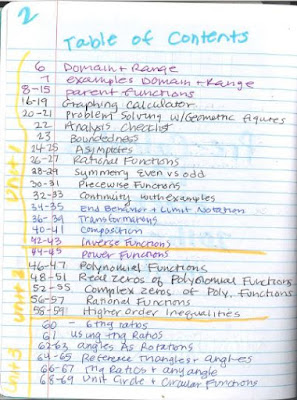 2
Table of Contents
6 Domain + Range
7 examples Domain + Range
8-15 parent functions
16-19 Graphing Calculator
20-21 Problem Solving w/Geometric figures
22 Analysis Checklist
23 Boundedness
24-25 Asymptotes
26-27 Rational Functions
28-29 Symmerry Even vs odd
30-31 Piecewise Functions
32-33 Continuity with examples
34-35 End Behavior + Limit Notation
36-39 Transformations
40-41 Composition
42-43 Inverse Functions
44-45 Power Functions
46-47 Polynomial Functions
48-51 Real zeros of Polynomial Functions
52-55 Complex zeros of Poly. Functions
56-57 Rational Functions
58-59 Higher Order Inequalities
60 - 6 trig ratios
61 using trig Ratios
62-63 angles As Rotations
64-65 Reference Triangles + angles
66-67 Trig Ratios + any angle
68-69 Unit Circle + Circular Functions
Unit 1
Unit 2
Unit 3